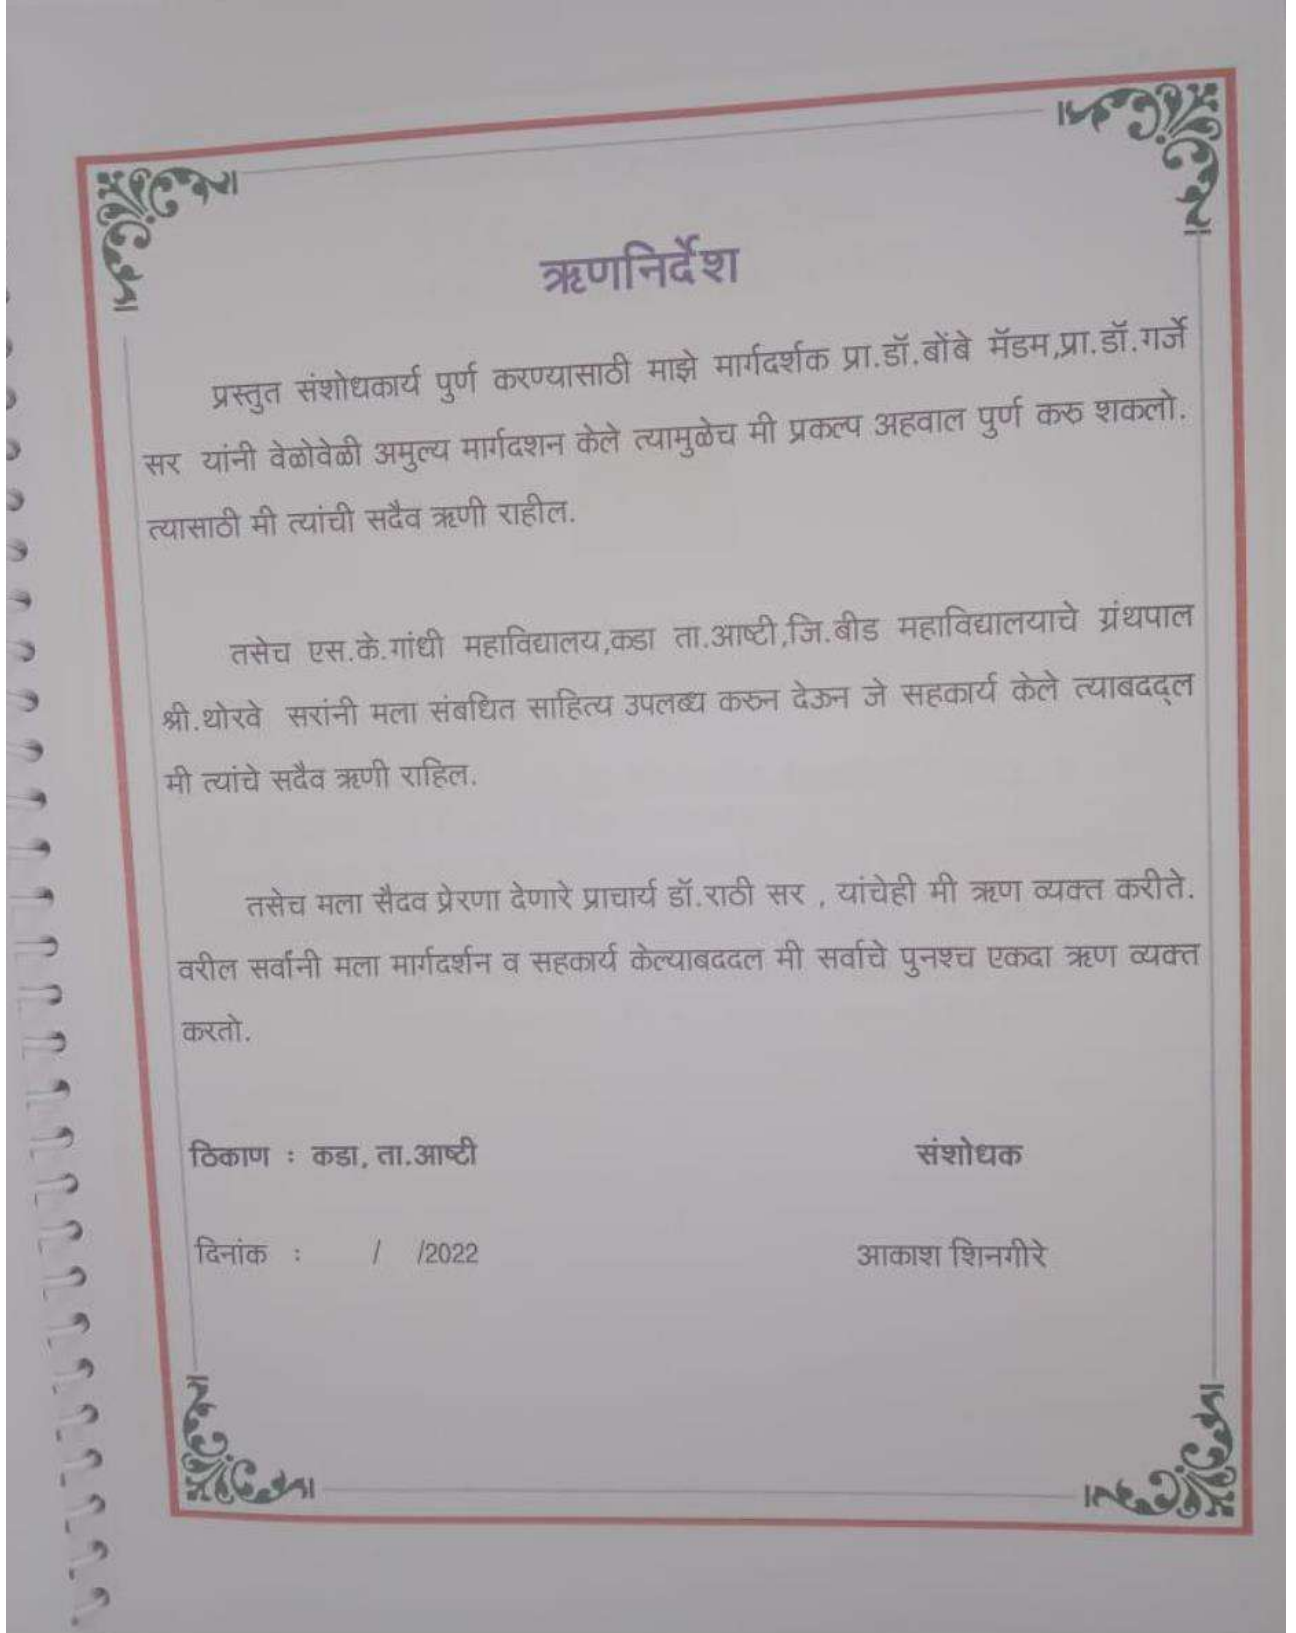 ऋणनिर्देश
प्रस्तुत संशोधकार्य पुर्ण करण्यासाठी माझे मार्गदर्शक प्रा.डॉ.बोंबे मॅडम,प्रा.डॉ.गर्जे
सर यांनी वेळोवेळी अमुल्य मार्गदशन केले त्यामुळेच मी प्रकल्प अहवाल पुर्ण करु शकलो.
त्यासाठी मी त्यांची सदैव ऋणी राहील.
तसेच एस.के.गांधी महाविद्यालय,कडा ता.आष्टी,जि.बीड महाविद्यालयाचे ग्रंथपाल
श्री.थोरवे सरांनी मला संबधित साहित्य उपलब्ध करुन देऊन जे सहकार्य केले त्याबदद्ल
मी त्यांचे सदैव ऋणी राहिल.
तसेच मला सैदव प्रेरणा देणारे प्राचार्य डॉ.राठी सर , यांचेही मी ऋण व्यक्त करीते.
वरील सर्वांनी मला मार्गदर्शन व सहकार्य केल्याबददल मी सर्वाचे पुनश्च एकदा ऋण व्यक्त
करतो.
ठिकाण : कडा, ता.आष्टी संशोधक
दिनांक : / /2022 आकाश शिनगीरे